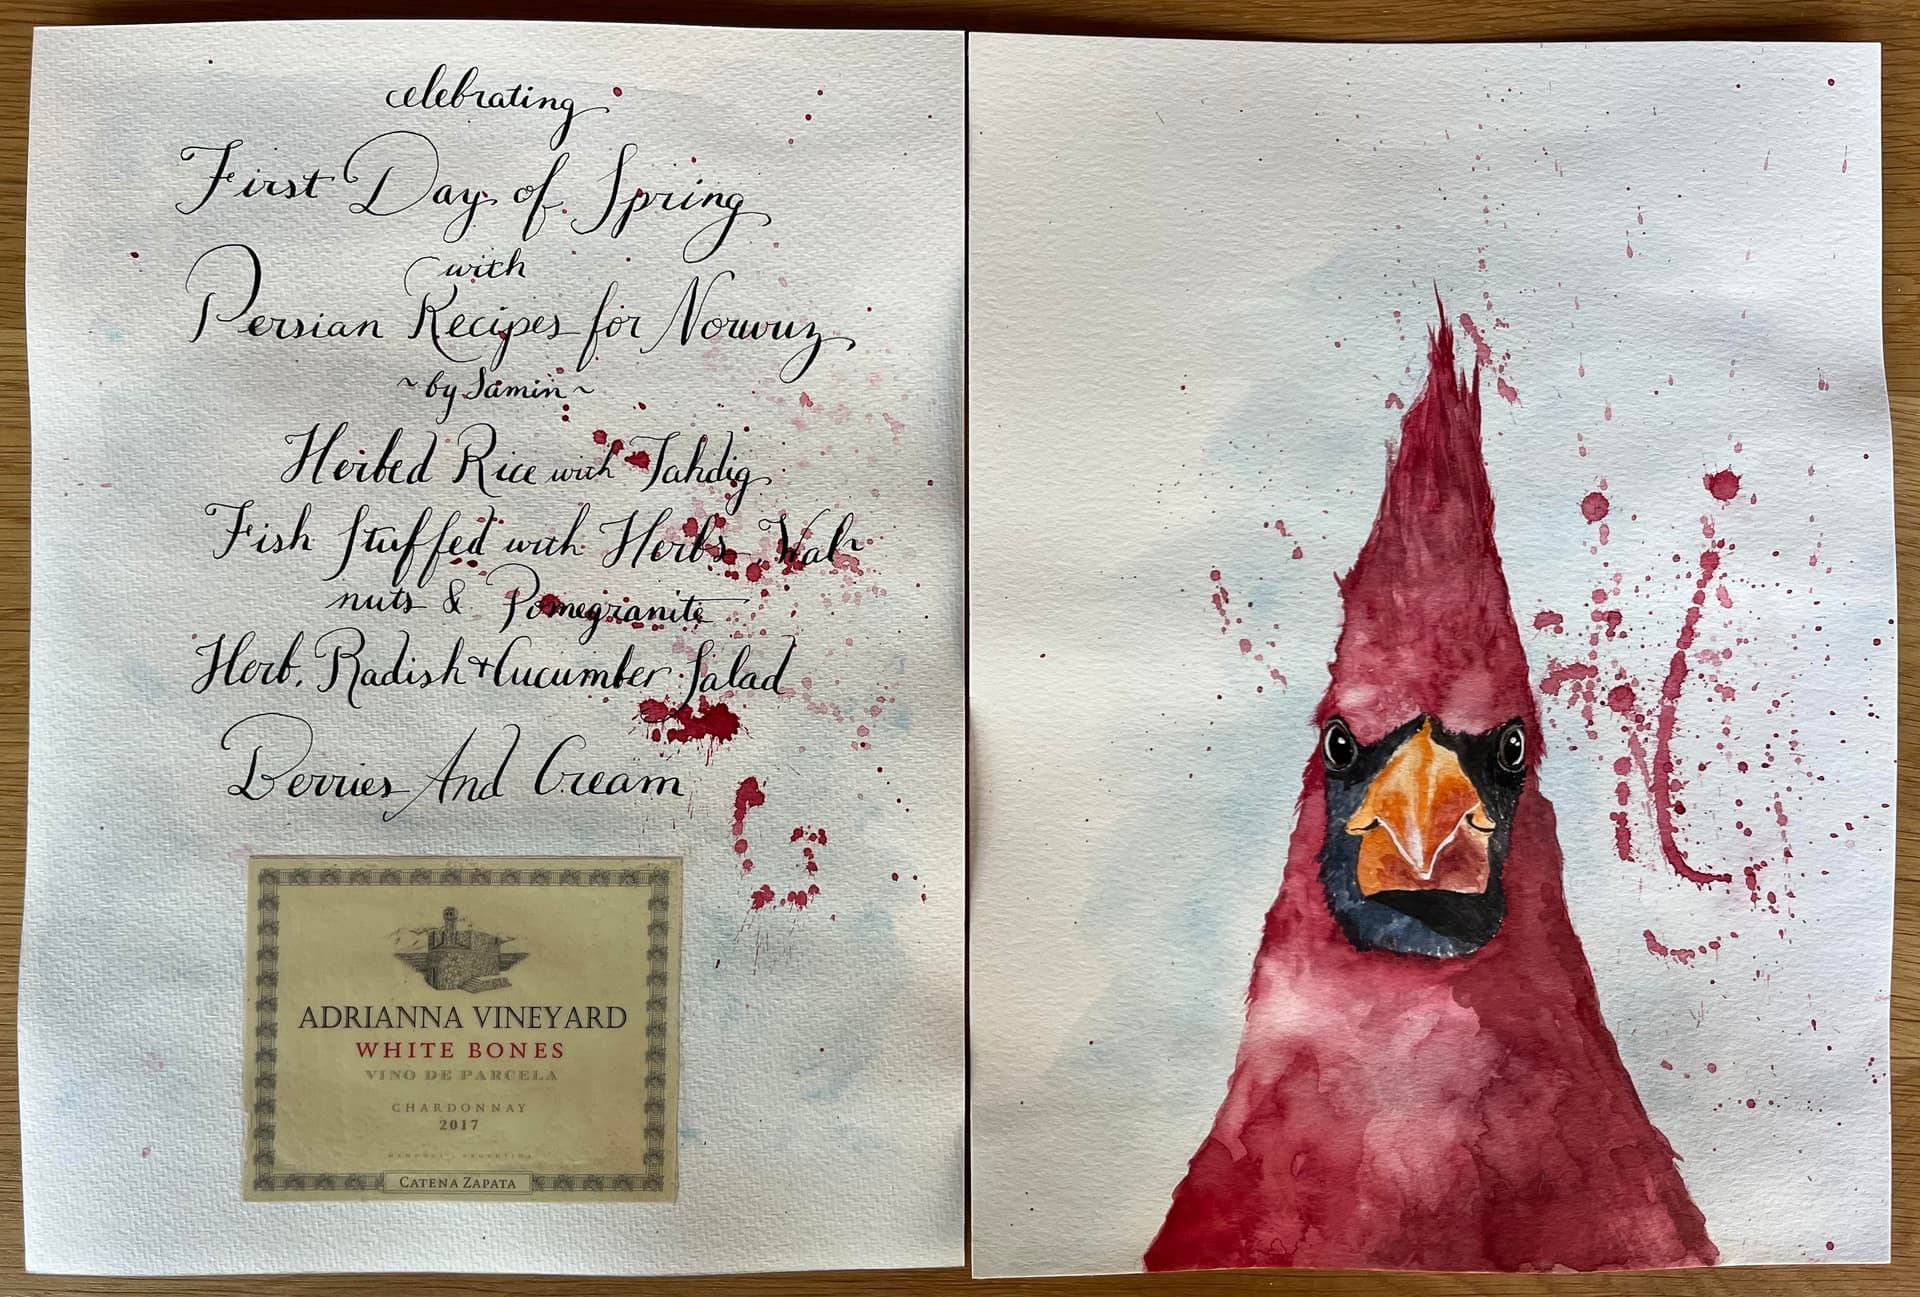 celebrating
First Day of Spring
with
Persian Recipes for Norwuz
~ by Samin ~
Herbed Rice with Tahdig
Fish Stuffed with Herbs, Wal-
nuts & Pomegranite
Herb, Radish + Cucumber Salad
Berries And Cream
ADRIANNA VINEYARD
WHITE BONES
VINO DE PARCELA
CHARDONNAY
2017
MENDOZA, ARGENTINA
CATENA ZAPATA